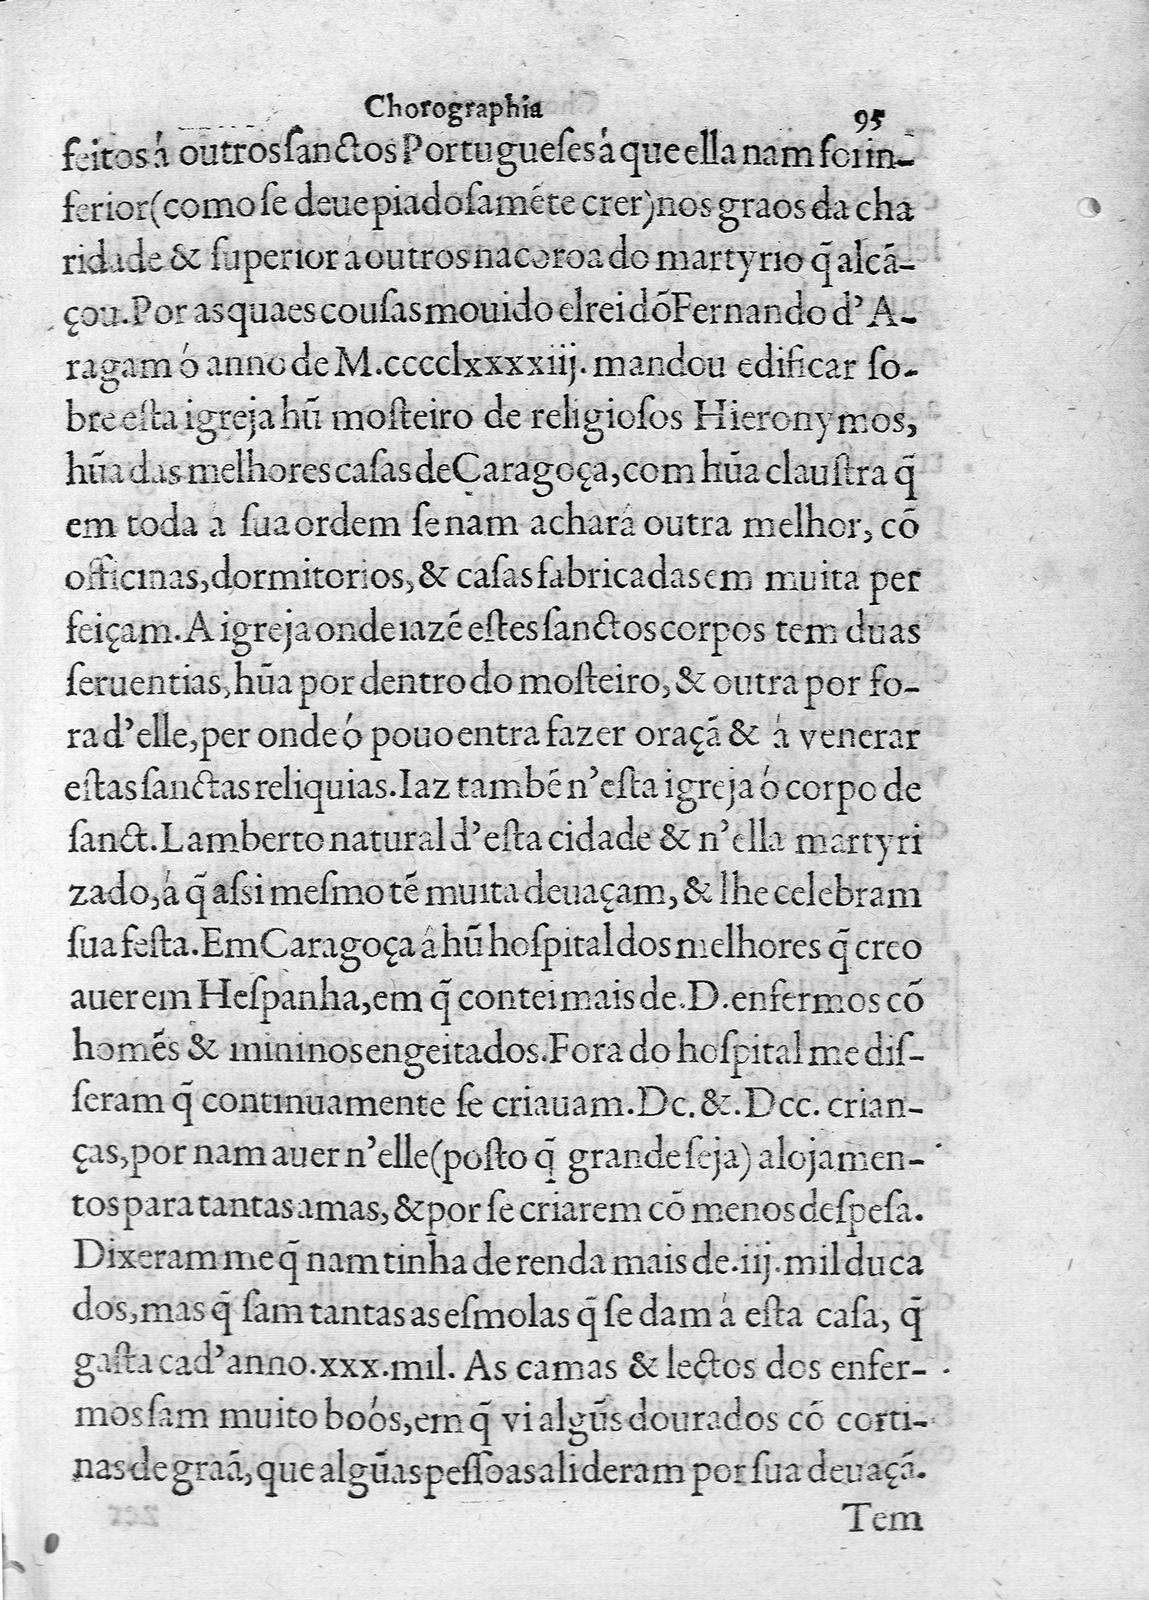 Chorographia 95
feitos á outros ſanctos Portugueſes á que ella nam foi in-
ferior (como ſe deue piadoſamẽte crer) nos graos da cha
ridade & ſuperior a outros na coroa do martyrio q̃ alcã-
çou. Por as quaes couſas mouido el rei dõ Fernando d’A-
ragam ó anno de M.cccclxxxxiij. mandou edificar ſo-
bre eſta igreja hũ moſteiro de religioſos Hieronymos,
hũa das melhores caſas de Çaragoça, com hũa clauſtra q̃
em toda a ſua ordem ſe nam achará outra melhor, cõ
officinas, dormitorios, & caſas fabricadas em muita per
feiçam. A igreja onde iazẽ eſtes ſanctos corpos tem duas
ſeruentias, hũa por dentro do moſteiro, & outra por fo-
ra d’elle, per onde ó pouo entra fazer oraçã & á venerar
eſtas ſanctas reliquias. Iaz tambẽ n’eſta igreja ó corpo de
ſanct. Lamberto natural d’eſta cidade & n’ella martyri
zado, á q̃ aſsi meſmo tẽ muita deuaçam, & lhe celebram
ſua feſta. Em Çaragoça á hũ hoſpital dos melhores q̃ creo
auer em Heſpanha, em q̃ contei mais de .D. enfermos cõ
homẽs & mininos engeitados. Fora do hoſpital me diſ-
ſeram q̃ continuamente ſe criauam .Dc. &. Dcc. crian-
ças, por nam auer n’elle (poſto q̃ grande ſeja) alojamen-
tos para tantas amas, & por ſe criarem cõ menos deſpeſa.
Dixeram me q̃ nam tinha de renda mais de .iij. mil duca
dos, mas q̃ ſam tantas as eſmolas q̃ ſe dam á eſta caſa, q̃
gaſta cad’anno .xxx. mil. As camas & lectos dos enfer-
mos ſam muito boós, em q̃ vi algũs dourados cõ corti-
nas de graã, que algũas peſſoas ali deram por ſua deuaçã.
Tem